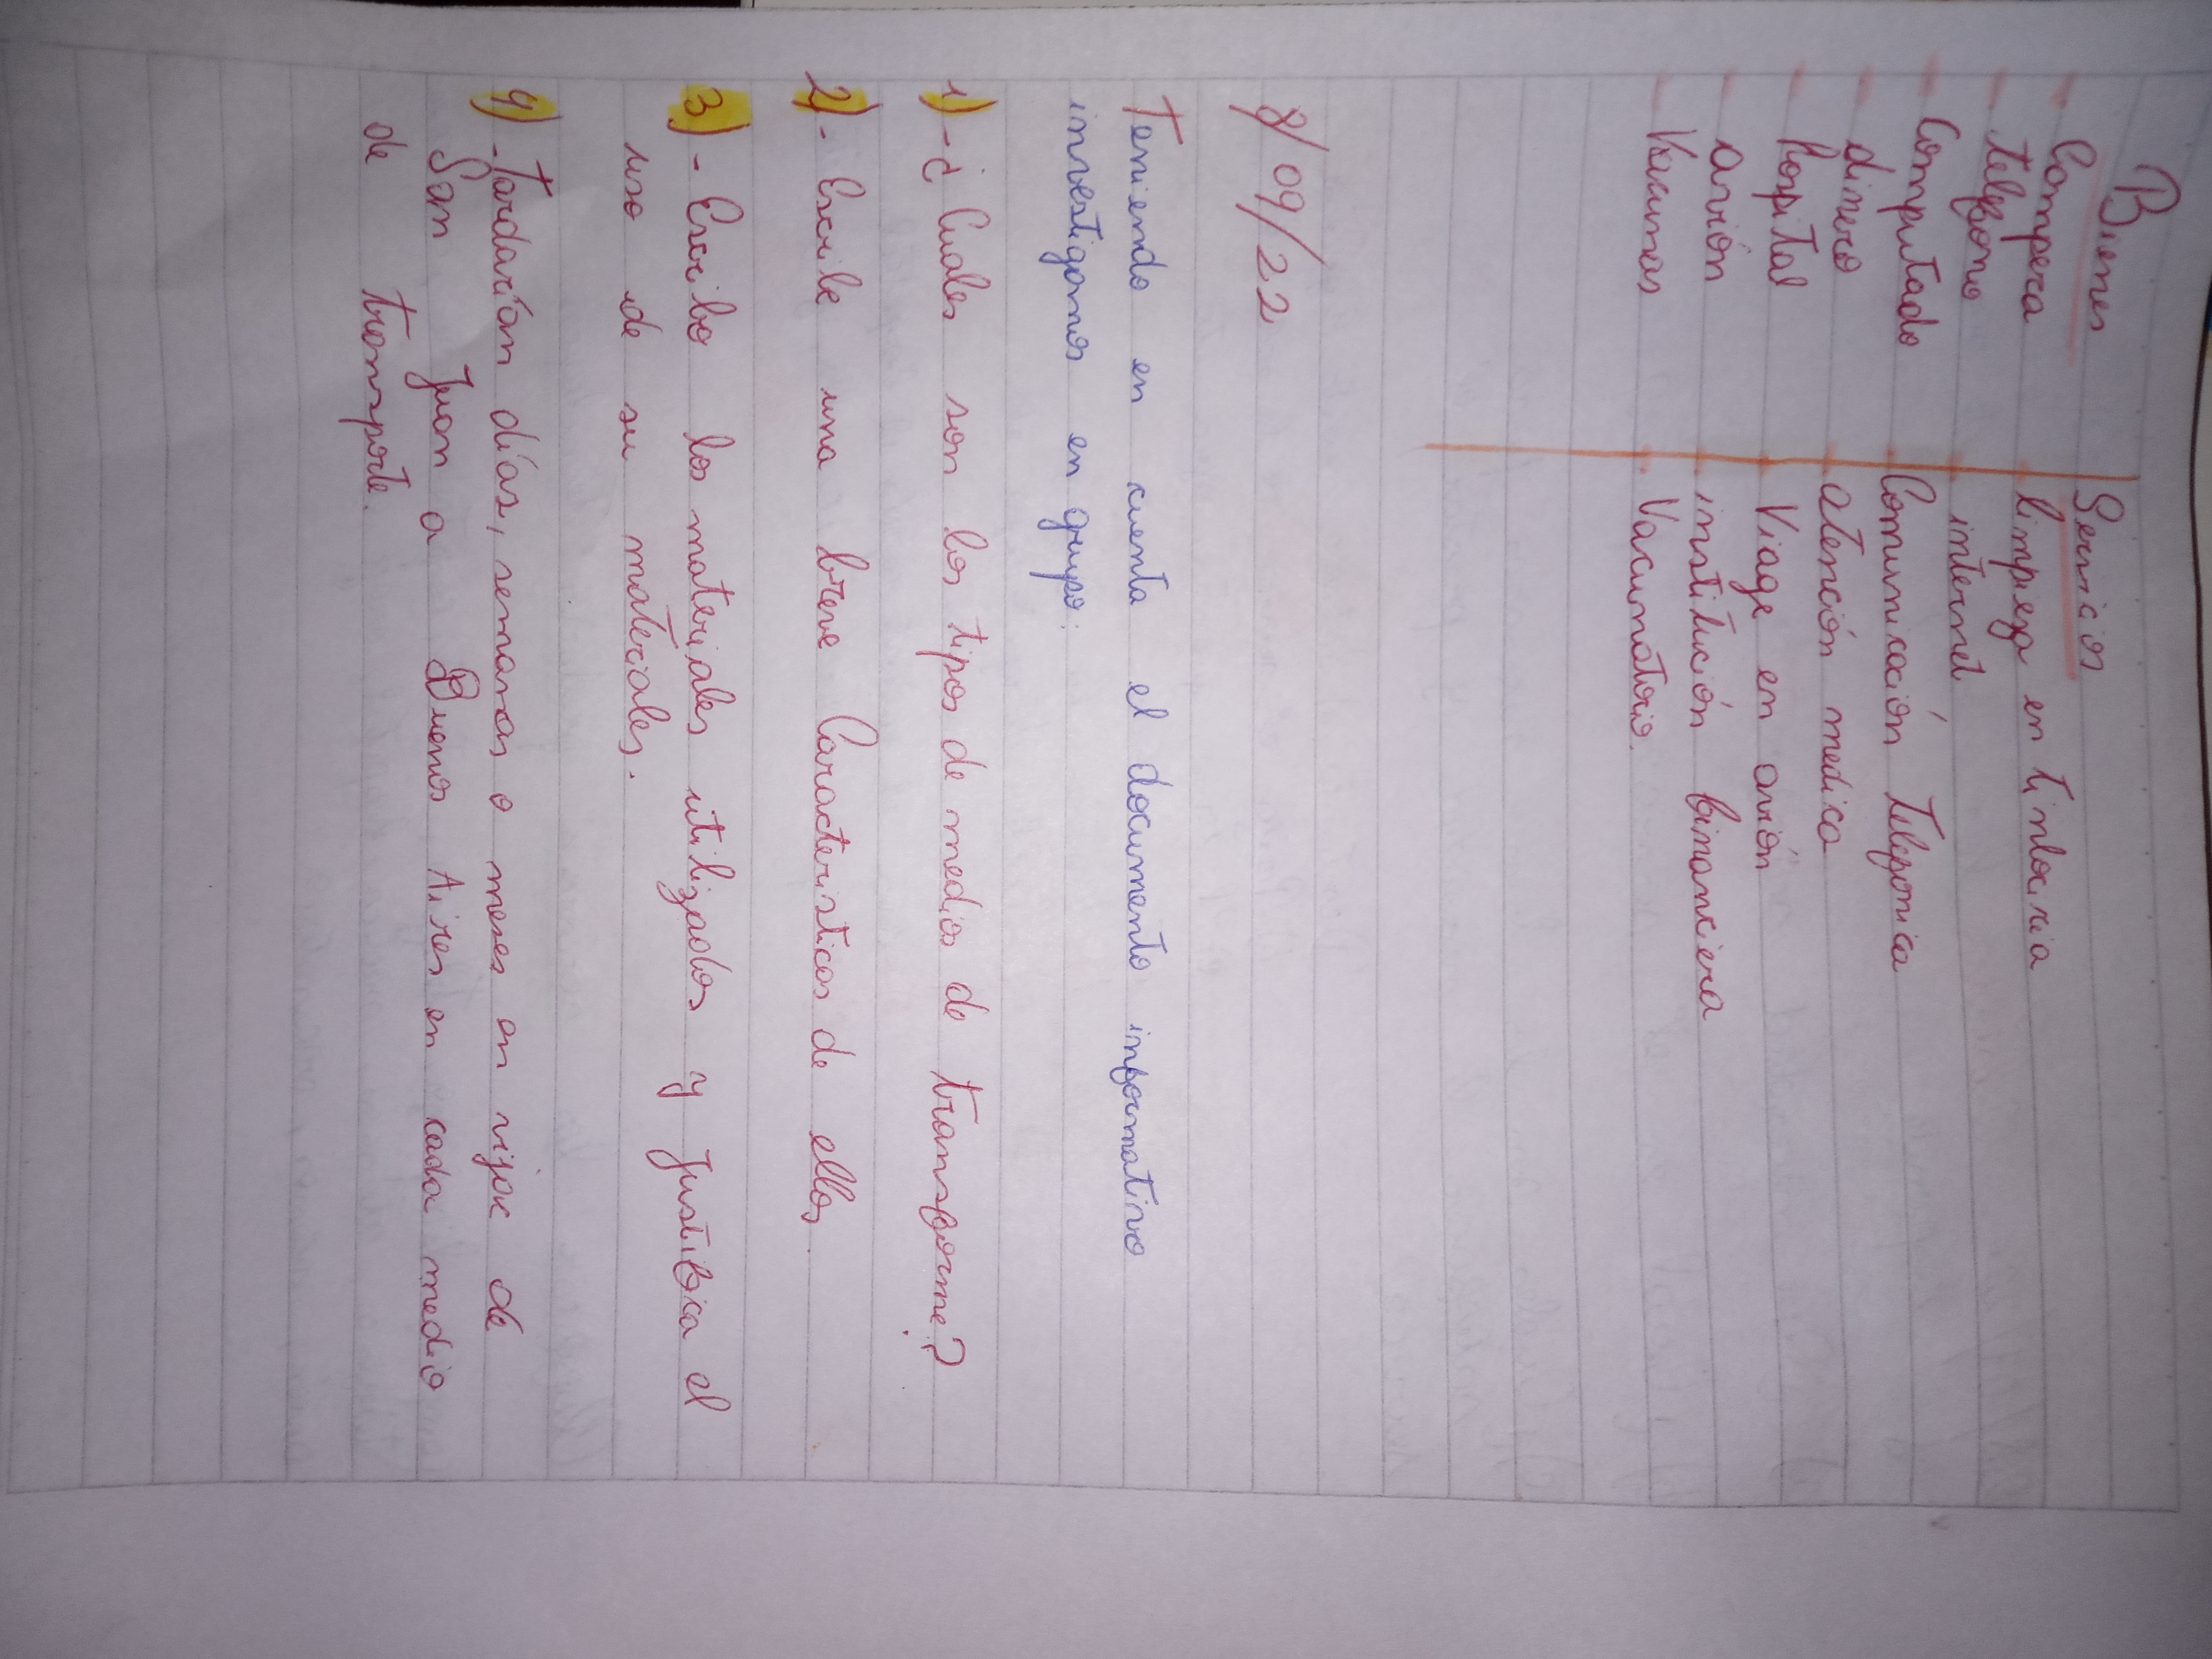 Bienes
Servicios
Campera
limpieza en tintoreria
telefono
internet
Computado
Comunicación Telefonica
dinero
atención medica
Hospital
Viage en avión
avión
institución financiera
Vacunas
Vacunatorio.
8/09/22
Teniendo en cuenta el documento informativo
investigamos en grupo:
1)-¿Cuales son los tipos de medios de transforme?
2)- Escribe una breve Caracteristicas de ellos
3)- Escribo los materiales utilizados y Justifica el
uso de su materiales.
4)-Tardarían días, semanas o meses en vijar de
San Juan a Buenos Aires en cada medio
de transporte.